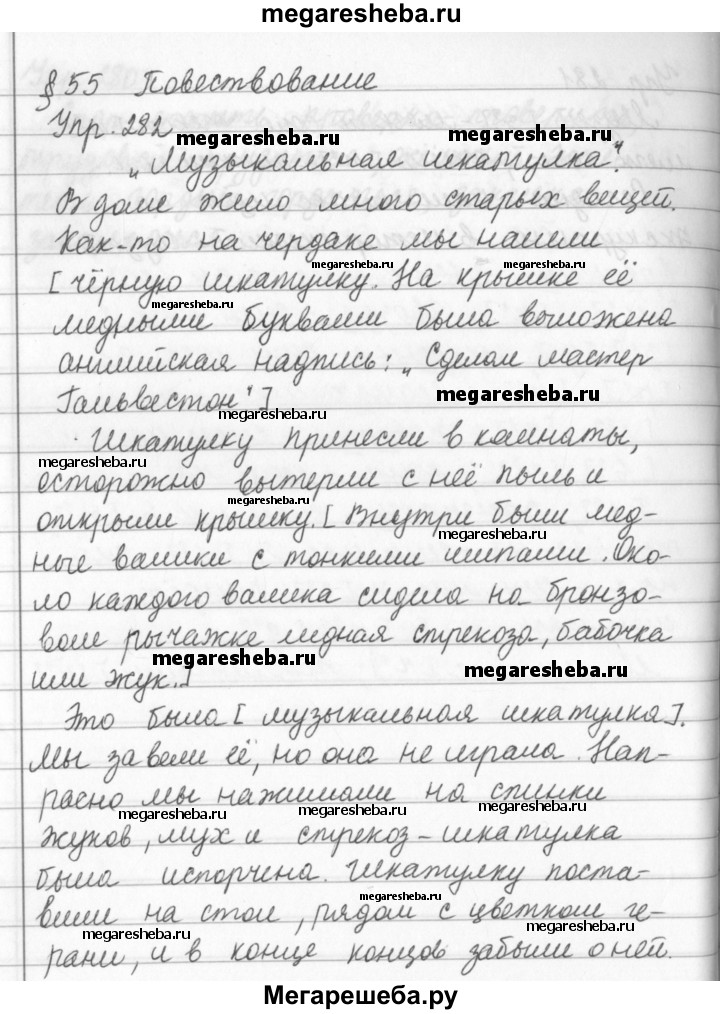 megaresheba.ru
§ 55 Повествование
Упр. 282
megaresheba.ru
megaresheba.ru
„Музыкальная шкатулка".
В доме жило много старых вещей.
Как-то на чердаке мы нашли
megaresheba.ru
[чёрную шкатулку. На крышке её
megaresheba.ru
медными буквами была выложена
английская надпись: „Сделал мастер
megaresheba.ru
Гальвестон"]
megaresheba.ru
Шкатулку принесли в комнаты,
megaresheba.ru
осторожно вытерли с неё пыль и
megaresheba.ru
открыли крышку. [Внутри были мед-
ные валики с тонкими шипами. Око-
ло каждого валика сидела на бронзо-
вом рычажке медная стрекоза, бабочка
megaresheba.ru
megaresheba.ru
или жук.]
Это была [музыкальная шкатулка].
Мы завели её, но она не играла. Нап-
расно мы нажимали на спинки
megaresheba.ru
megaresheba.ru
жуков, мух и стрекоз - шкатулка
была испорчена. Шкатулку поста-
megaresheba.ru
вили на стол, рядом с цветком ге-
megaresheba.ru
megaresheba.ru
рани, и в конце концов забыли о ней.
Мегарешеба.ру